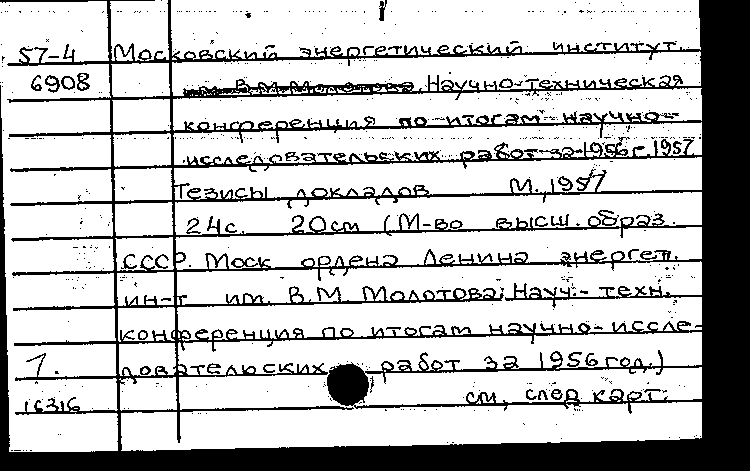 57-4 Московский энергетический институт.
6908 им. В.М. Молотова. Научно-техническая
конференция по итогам научно-
исследовательских работ за 1956 г. 1957
Тезисы докладов М., 1957
24с. 20см (М-во высш. образ.
СССР. Моск ордена Ленина энергет.
ин-т им. В.М Молотова; Науч.- техн.
конференция по итогам научно-иссле-
1. довательских работ за 1956 год.)
16316 см, след карт.